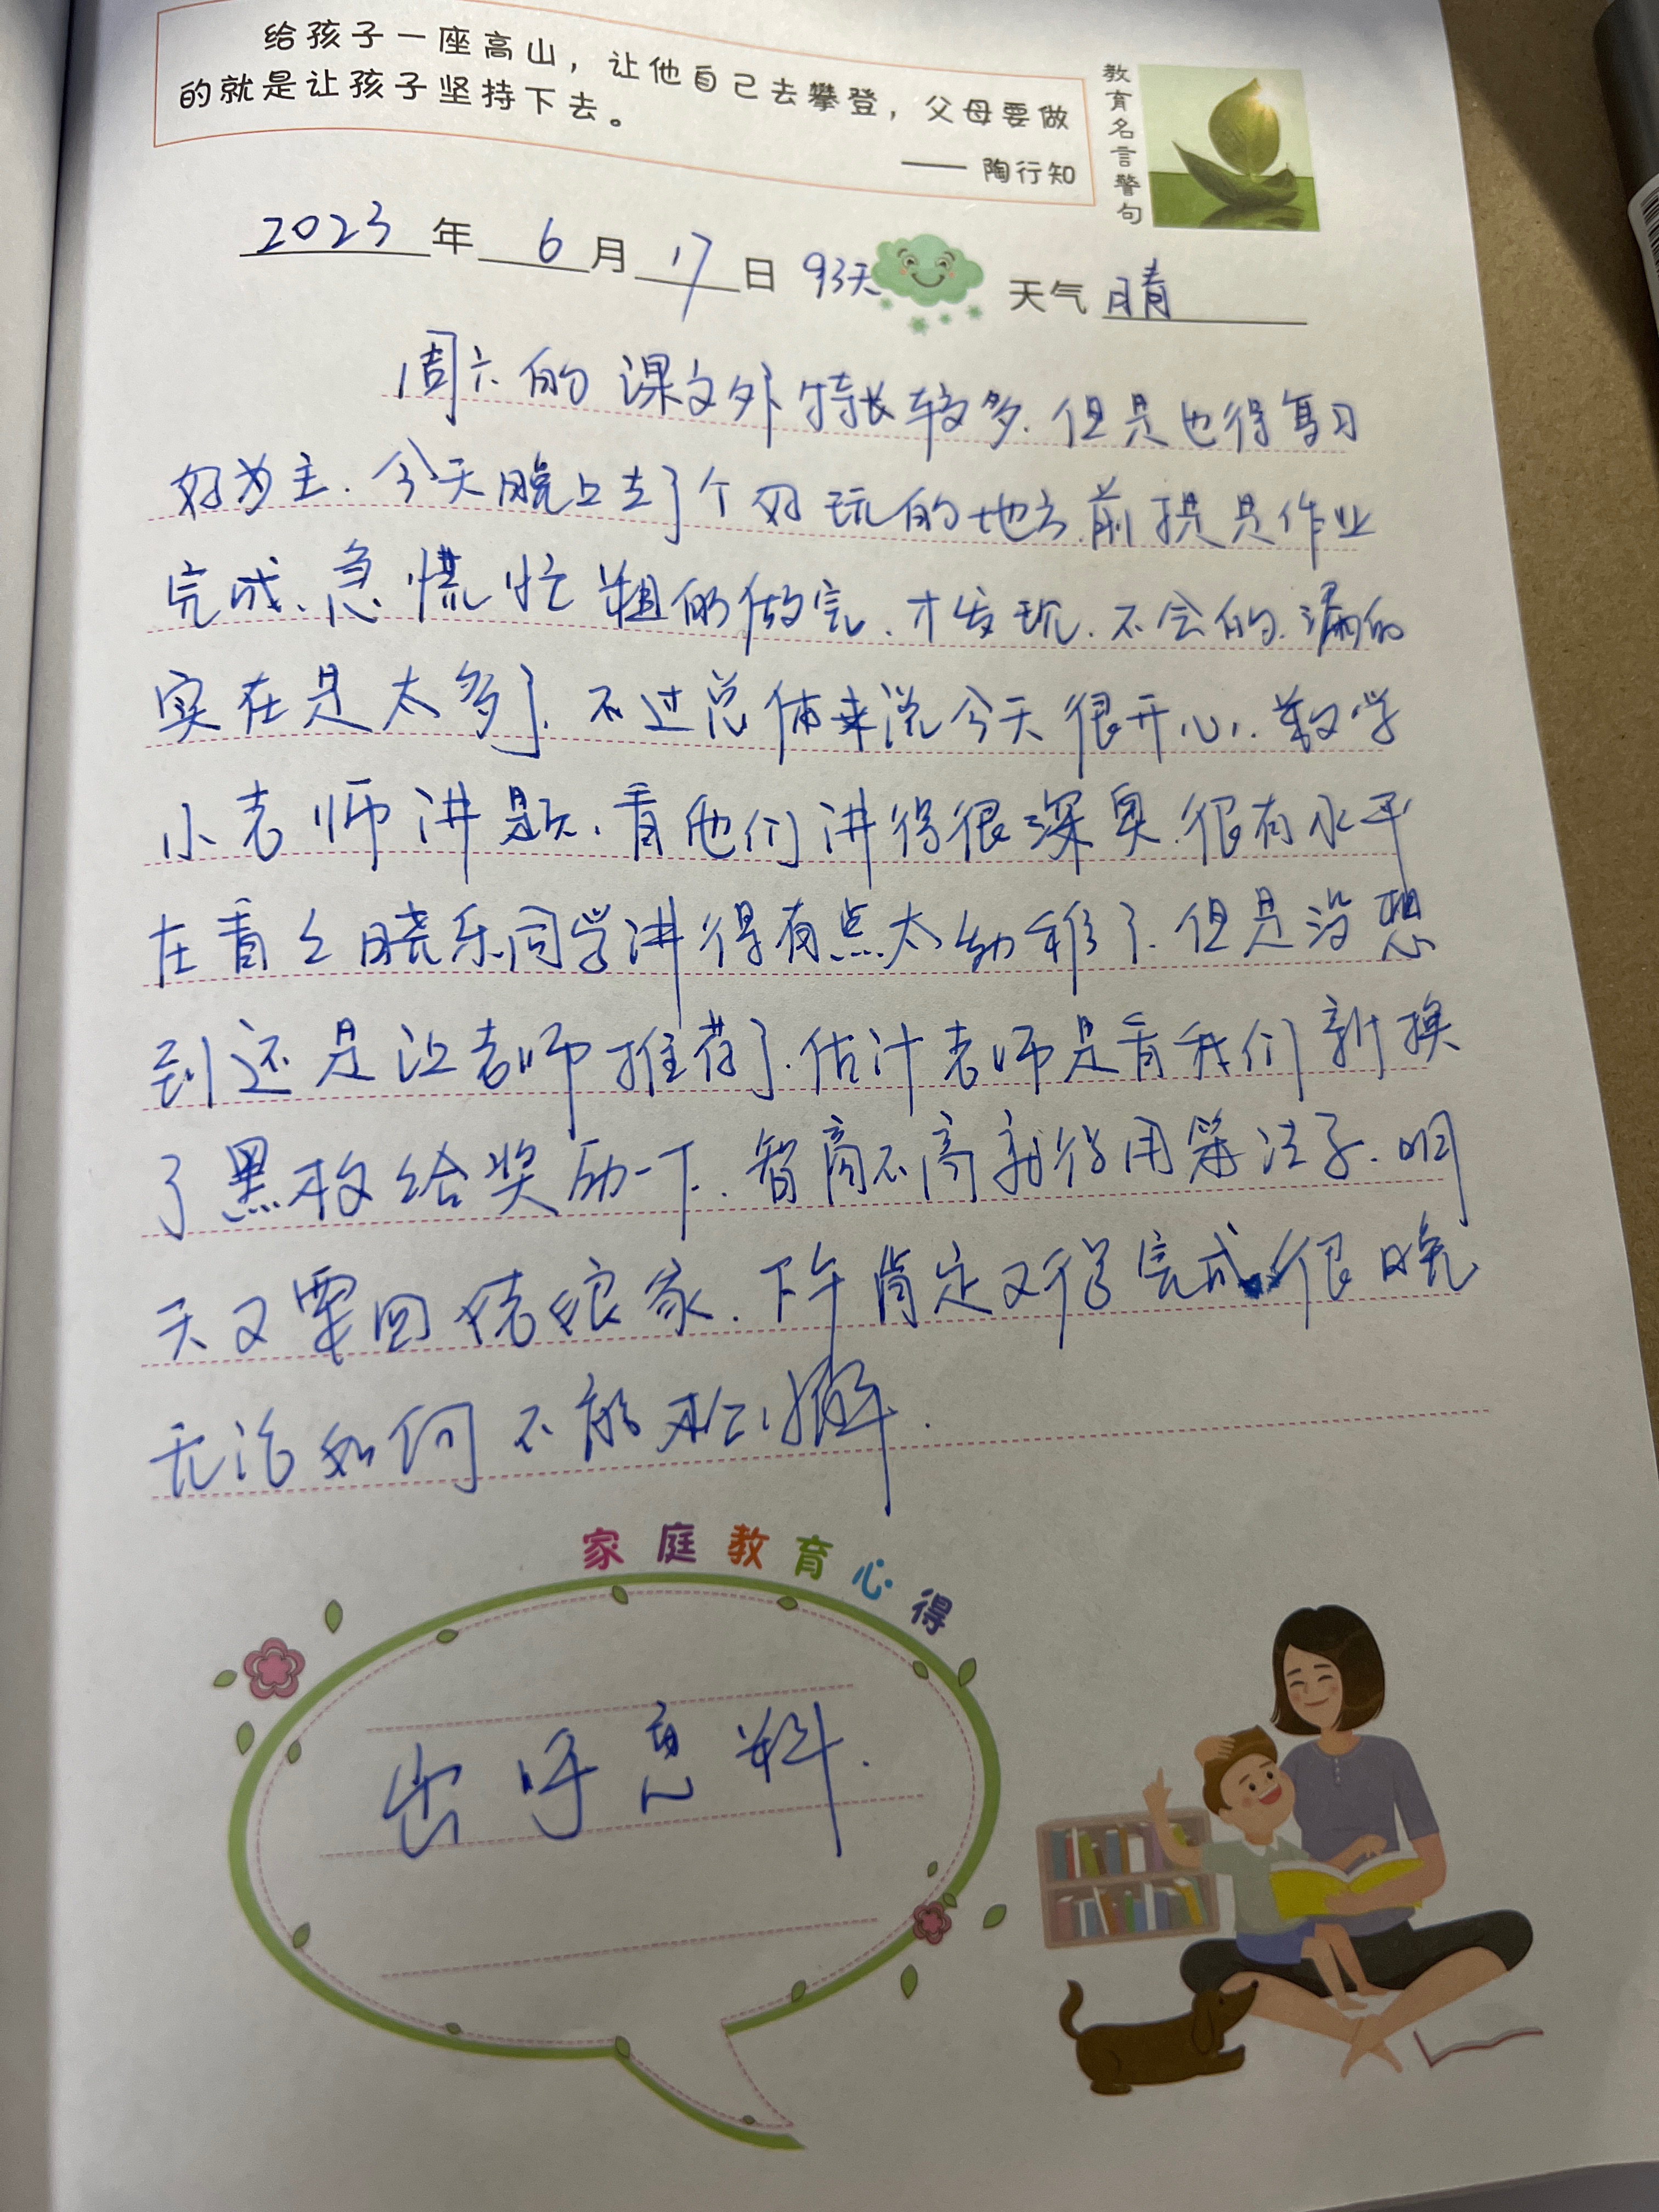 给孩子一座高山，让他自己去攀登，父母要做
的就是让孩子坚持下去。
—— 陶行知
教育名言警句
2023年6月17日 93天 天气 晴
周六的课文外特长较多.但是也得复习
好为主.今天晚上去了个好玩的地方.前提是作业
完成、急慌忙粗的做完.才发现.不会的.漏的
实在是太多了.不过总体来说今天很开心.数学
小老师讲题.看他们讲得很深奥.很有水平
在看么晓乐同学讲得有点太幼稚了.但是没想
到还是让老师推荐了.估计老师是看我们新换
了黑板给奖励一下.智商不高就得用笨法子.明
天又要回姥娘家.下午肯定又得完成很晚
无论如何不能松懈.
家庭教育心得
出乎意料.